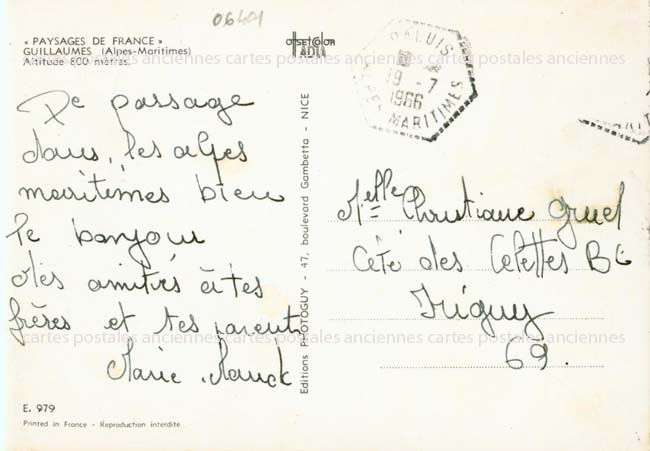 06404
« PAYSAGES DE FRANCE »
GUILLAUMES (Alpes-Maritimes)
Altitude 800 mètres.
OFFSETCOLOR
DALUIS
19 - 7
1966
ALPES MARITIMES
cartes postales anciennes cartes postales anciennes cartes postales anciennes
De passage
dans les alpes
maritimes bien
le bonjour
Mes amitiés à tes
frères et tes parents
Marie
Editions PHOTOGUY - 47, boulevard Gambetta - NICE
Melle Christiane Gruel
Cité des Celettes
Irigny
69.
cartes postales anciennes cartes postales anciennes cartes postales anciennes
E. 979
Printed in France - Reproduction interdite